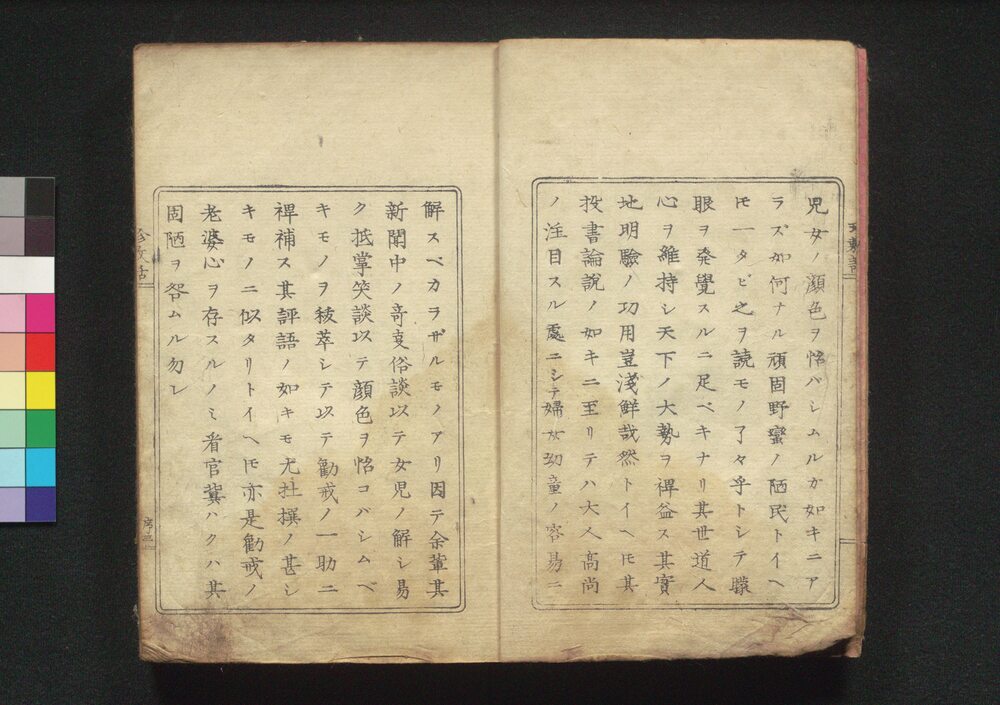 児女ノ顔色ヲ怡バシムルガ如キニア
ラズ如何ナル頑固野蛮ノ陋民トイヘ
𪜈一タビ之ヲ読モノ了々乎トシテ矇
眼ヲ発覺スルニ足ベキナリ其世道人
心ヲ維持シ天下ノ大勢ヲ裨益ス其實
地明驗ノ功用豈淺鮮哉然トイヘ𪜈其
投書論説ノ如キニ至リテハ大人高尚
ノ注目スル處ニシテ婦女幼童ノ容易ニ
解スベカラザルモノアリ因テ余輩其
新聞中ノ竒変俗談以テ女児ノ解シ易
ク抵掌笑談以テ顔色ヲ怡コバシムベ
キモノヲ秡萃シテ以テ勧戒ノ一助ニ
裨補ス其評語ノ如キモ尤杜撰ノ甚シ
キモノニ似タリトイヘ𪜈亦是勧戒ノ
老婆心ヲ存スルノミ看官冀ハクハ其
固陋ヲ咎ムル勿レ
序三